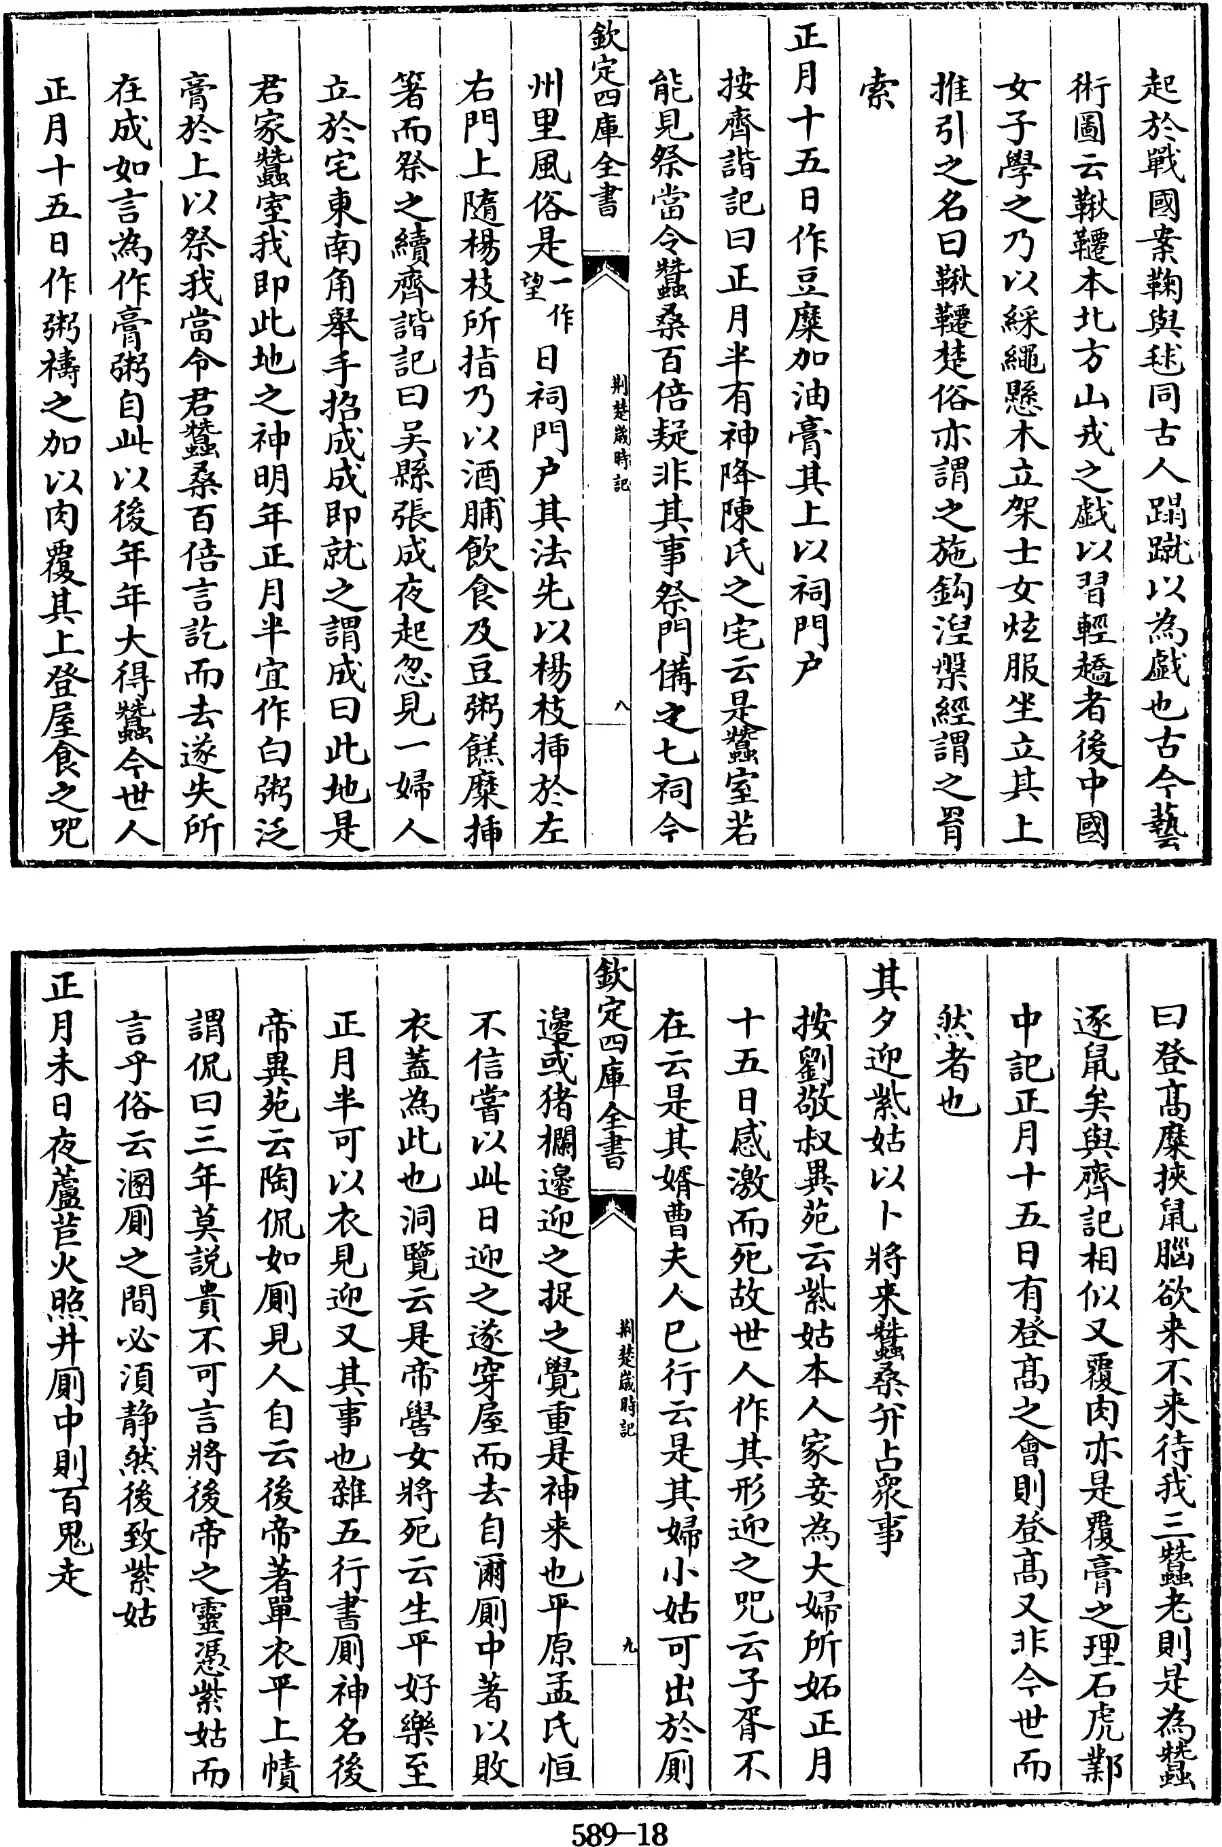 起於戰國案鞠與毬同古人蹋蹴以為戲也古今藝
術圖云鞦韆本北方山戎之戲以習輕趫者後中國
女子學之乃以綵繩懸木立架士女炫服坐立其上
推引之名曰鞦韆楚俗亦謂之施鈎湼槃經謂之罥
索
正月十五日作豆糜加油膏其上以祠門户
按齊諧記曰正月半有神降陳氏之宅云是蠶室若
能見祭當令蠶桑百倍疑非其事祭門備之七祠今
欽定四庫全書
荆楚歲時記
八
州里風俗是一作望日祠門户其法先以楊枝挿於左
右門上隨楊枝所指乃以酒脯飲食及豆粥餻糜挿
箸而祭之續齊諧記曰吴縣張成夜起忽見一婦人
立於宅東南角舉手招成成即就之謂成曰此地是
君家蠶室我即此地之神明年正月半宜作白粥泛
膏於上以祭我當令君蠶桑百倍言訖而去遂失所
在成如言為作膏粥自此以後年年大得蠶今世人
正月十五日作粥禱之加以肉覆其上登屋食之咒
曰登髙糜挾鼠腦欲来不来待我三蠶老則是為蠶
逐鼠矣與齊記相似又覆肉亦是覆膏之理石虎鄴
中記正月十五日有登髙之會則登髙又非今世而
然者也
其夕迎紫姑以卜將来蠶桑并占衆事
按劉敬叔異苑云紫姑本人家妾為大婦所妬正月
十五日感激而死故世人作其形迎之咒云子胥不
在云是其婿曹夫人已行云是其婦小姑可出於厠
欽定四庫全書
荆楚歲時記
九
邊或猪欄邉迎之捉之覺重是神来也平原孟氏恒
不信嘗以此日迎之遂穿屋而去自爾厠中著以敗
衣葢為此也洞覽云是帝嚳女將死云生平好樂至
正月半可以衣見迎又其事也雜五行書厠神名後
帝異苑云陶侃如厠見人自云後帝著單衣平上幘
謂侃曰三年莫説貴不可言將後帝之靈憑紫姑而
言乎俗云溷厠之間必湏静然後致紫姑
正月未日夜蘆苣火照井厠中則百鬼走
589-18